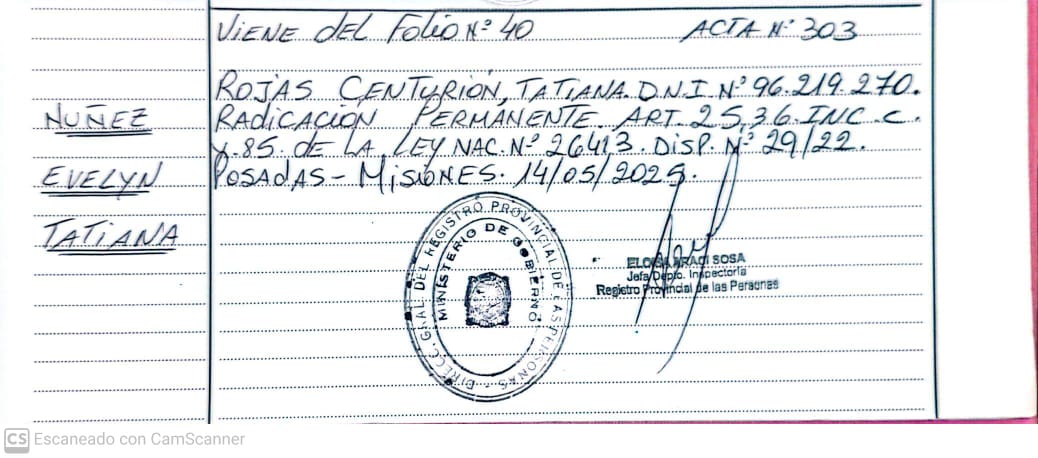 VIENE DEL FOLIO Nº 40 ACTA Nº 303
ROJAS CENTURIÓN, TATIANA. D.N.I. Nº 96.219.270.
RADICACIÓN PERMANENTE ART. 25,36.INC.C.
Y.85. DE LA LEY NAC. Nº 26413. DISP. Nº 29/22.
POSADAS - MISIONES. 14/05/2025.
NUÑEZ
EVELYN
TATIANA
DIRECC. GRAL. DEL REGISTRO PROVINCIAL DE LAS PERSONAS
MINISTERIO DE GOBIERNO
ELOISA ARACI SOSA
Jefa Depto. Inspectoría
Registro Provincial de las Personas
CS Escaneado con CamScanner